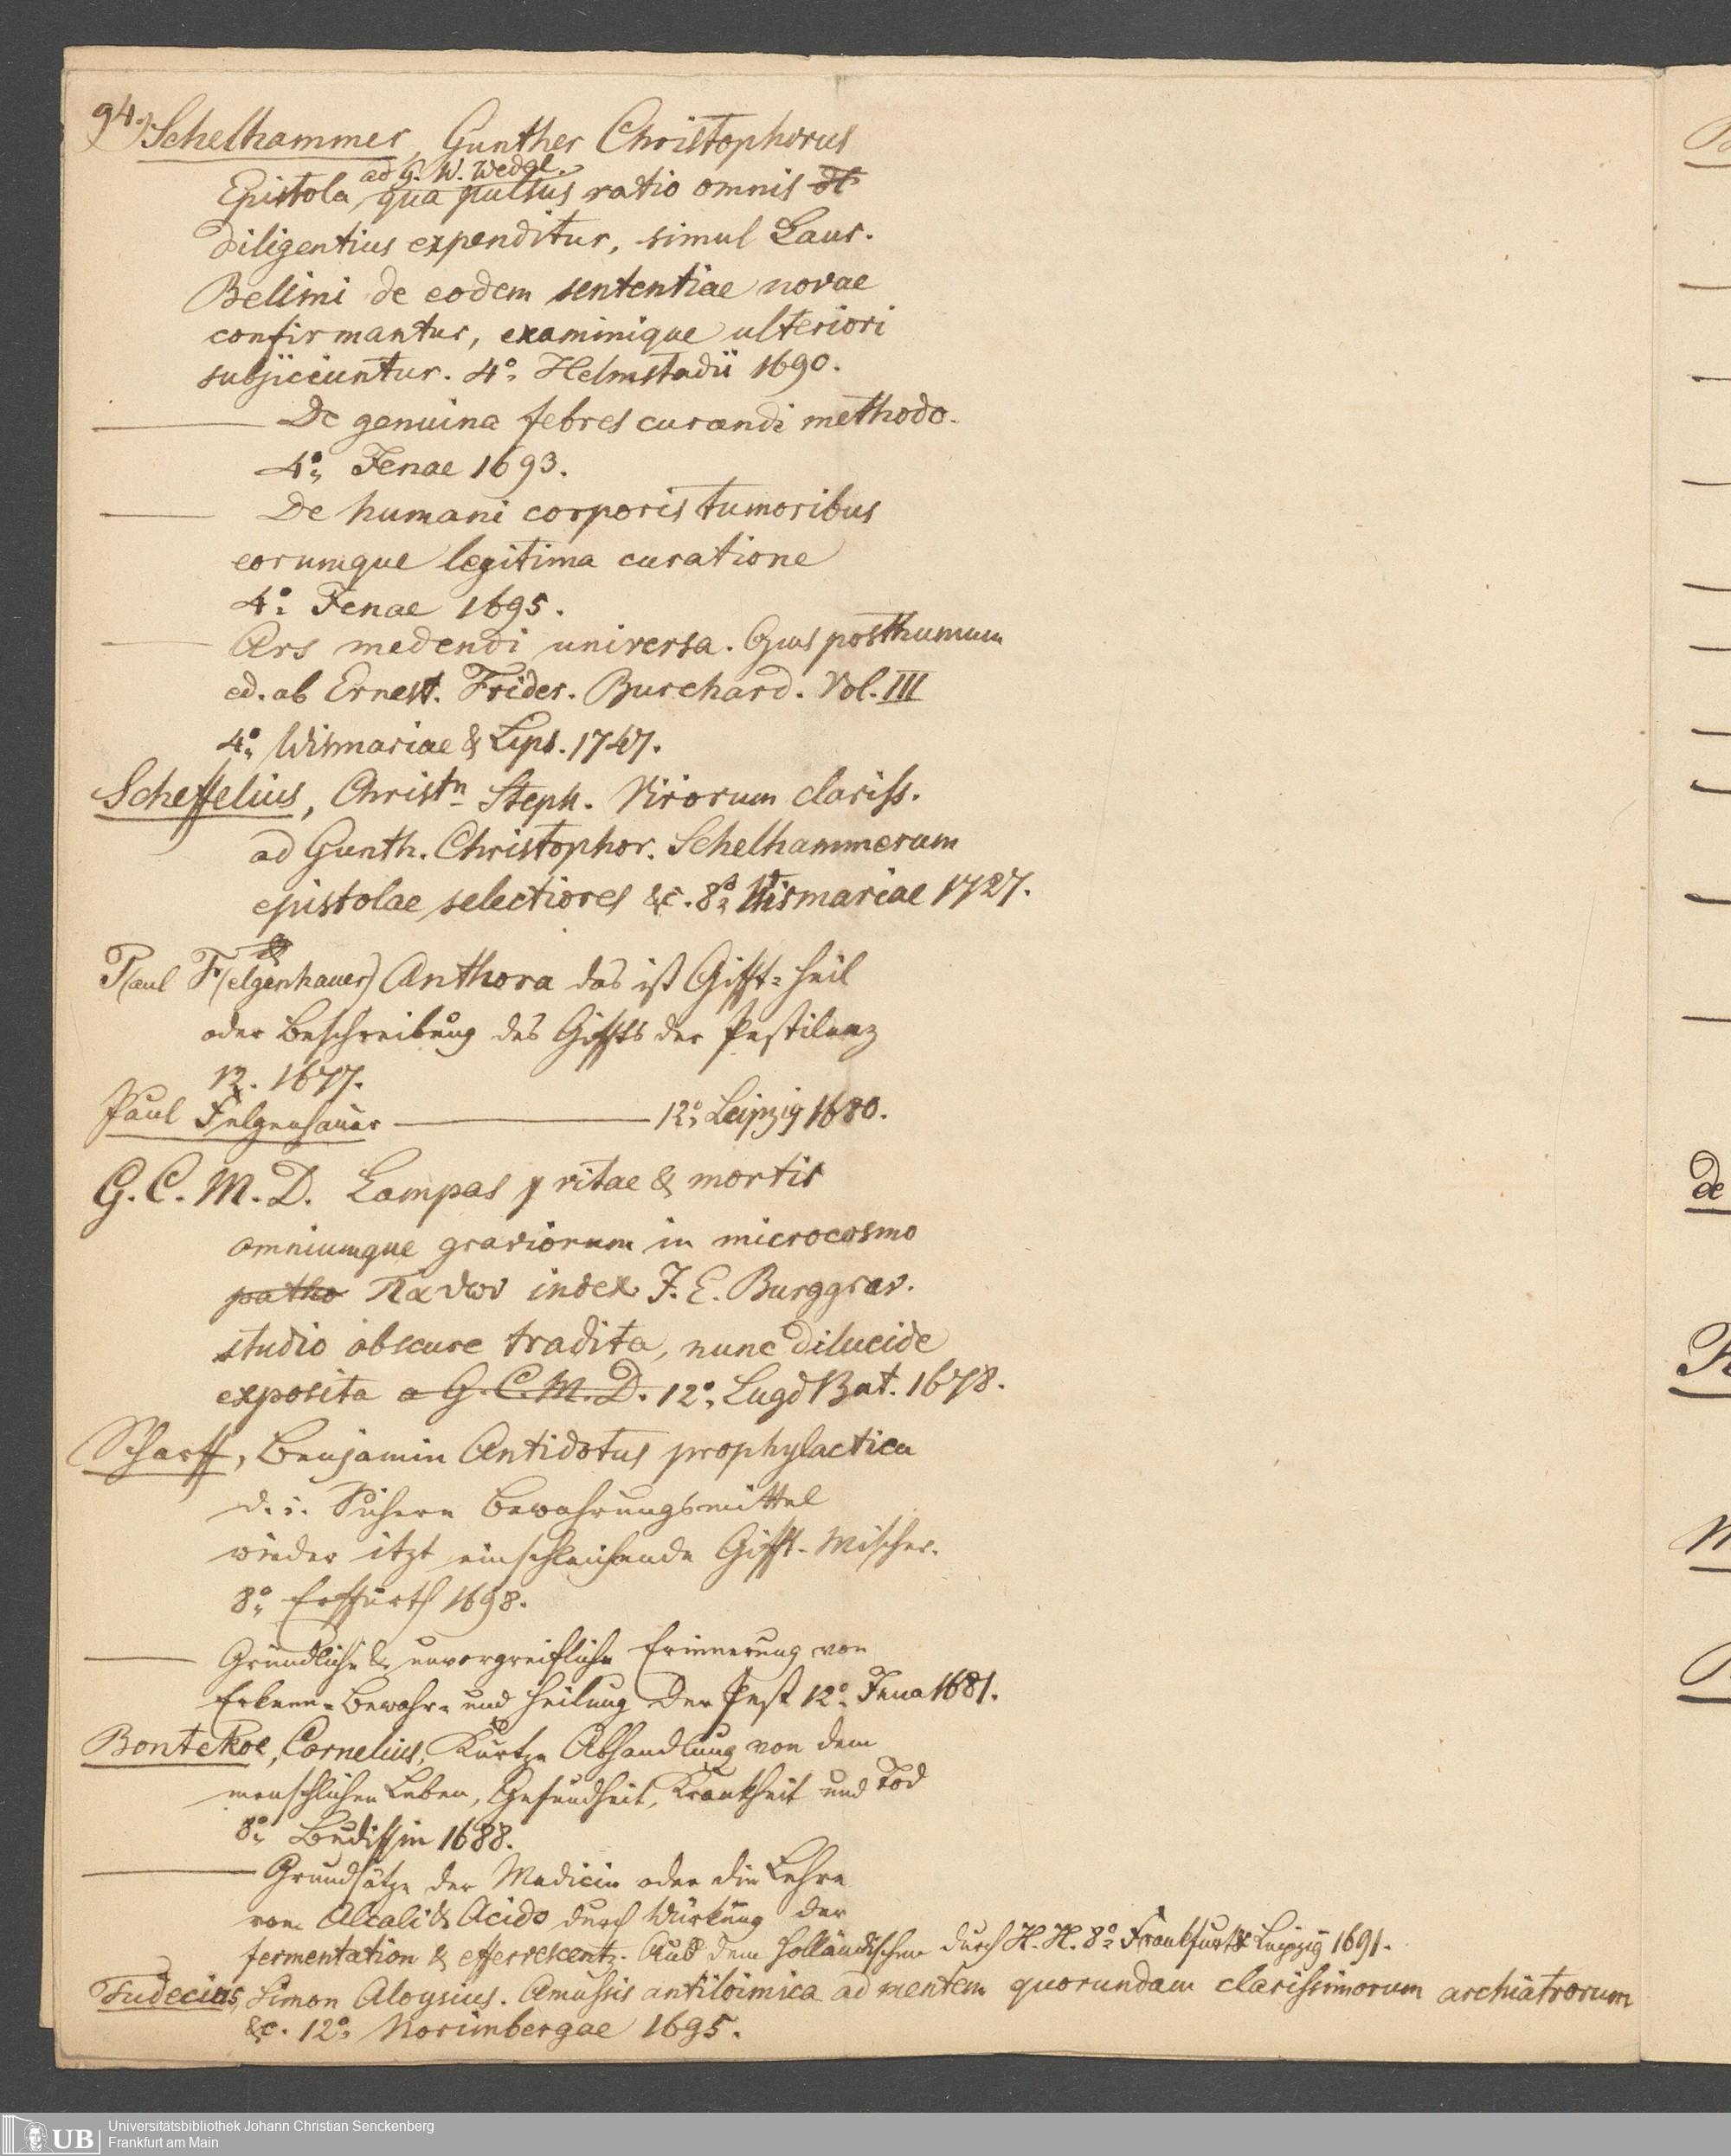 94.) Schelhammer, Gunther Christophorus
ad G. W. Wedel.
Epistola, qua pulsus ratio omnis et
diligentius expenditur, simul Laur.
Bellini de eodem sententiae novae
confirmantur, examinique ulteriori
subjiciuntur. 4o. Helmstadii 1690.
— De genuina febres curandi methodo.
4o. Jenae 1693.
— De humani corporis tumoribus
eorumque legitima curatione
4o. Jenae 1695.
— Ars medendi universa. Opus posthumum
ed. ab Ernest. Frider. Burchard. Vol. III
4o. Wismariae & Lips. 1747.
Scheffelius, Christn Steph. Virorum clariss.
ad Gunth. Christophor. Schelhammerum
epistolae selectiores &c. 8o. Wismariae 1727.
P(aul F(elgenhauer) Anthora das ist Gifft-Heil
oder Beschreibung des Giffts der Pestilenz
12. 1677.
Paul Felgenhauer — 12o. Leipzig 1680.
G. C. M. D. Lampas vitae & mortis
omniumque graviorum in microcosmo
patho παθων index J. E. Burggrav.
studio obscure tradita, nunc dilucide
exposita a G. C. M. D. 12o. Lugd Bat. 1678.
Scharff, Benjamin Antidotus prophylactica
d. i. Sichere Bewahrungsmittel
wieder itzt einschleichende Gifft-Mischer.
8o. Erffurth 1698.
— Gründliche & unvorgreifliche Erinnerung von
Erkenn- Bewahr- und Heilung der Pest 12o. Jena 1681.
Bontekoe, Cornelius, Kurtze Abhandlung von dem
menschlichen Leben, Gesundheit, Krankheit und Tod
8o. Budissin 1688.
— Grundsätze der Medicin oder die Lehre
vom Alcali & Acido durch Würkung der
fermentation & effervescentz. Auß dem Holländischen durch H. H. 8o. Frankfurt & Leipzig 1691.
Tudecius, Simon Aloysius. Amussis antiloimica ad mentem quorundam clarissimorum archiatrorum
&c. 12o. Norimbergae 1695.
de
UB
Universitätsbibliothek Johann Christian Senckenberg
Frankfurt am Main